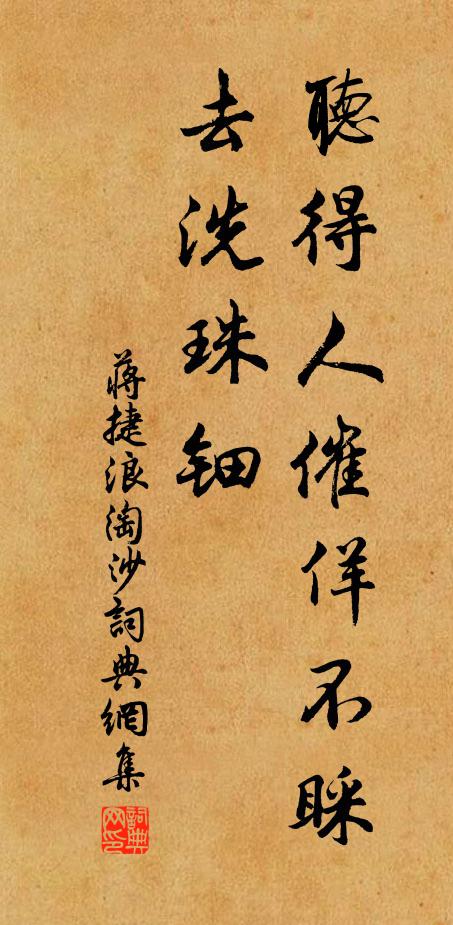 聽得人催佯不睬
去洗珠鈿
蔣捷浪淘沙詞典網集
詞典网印